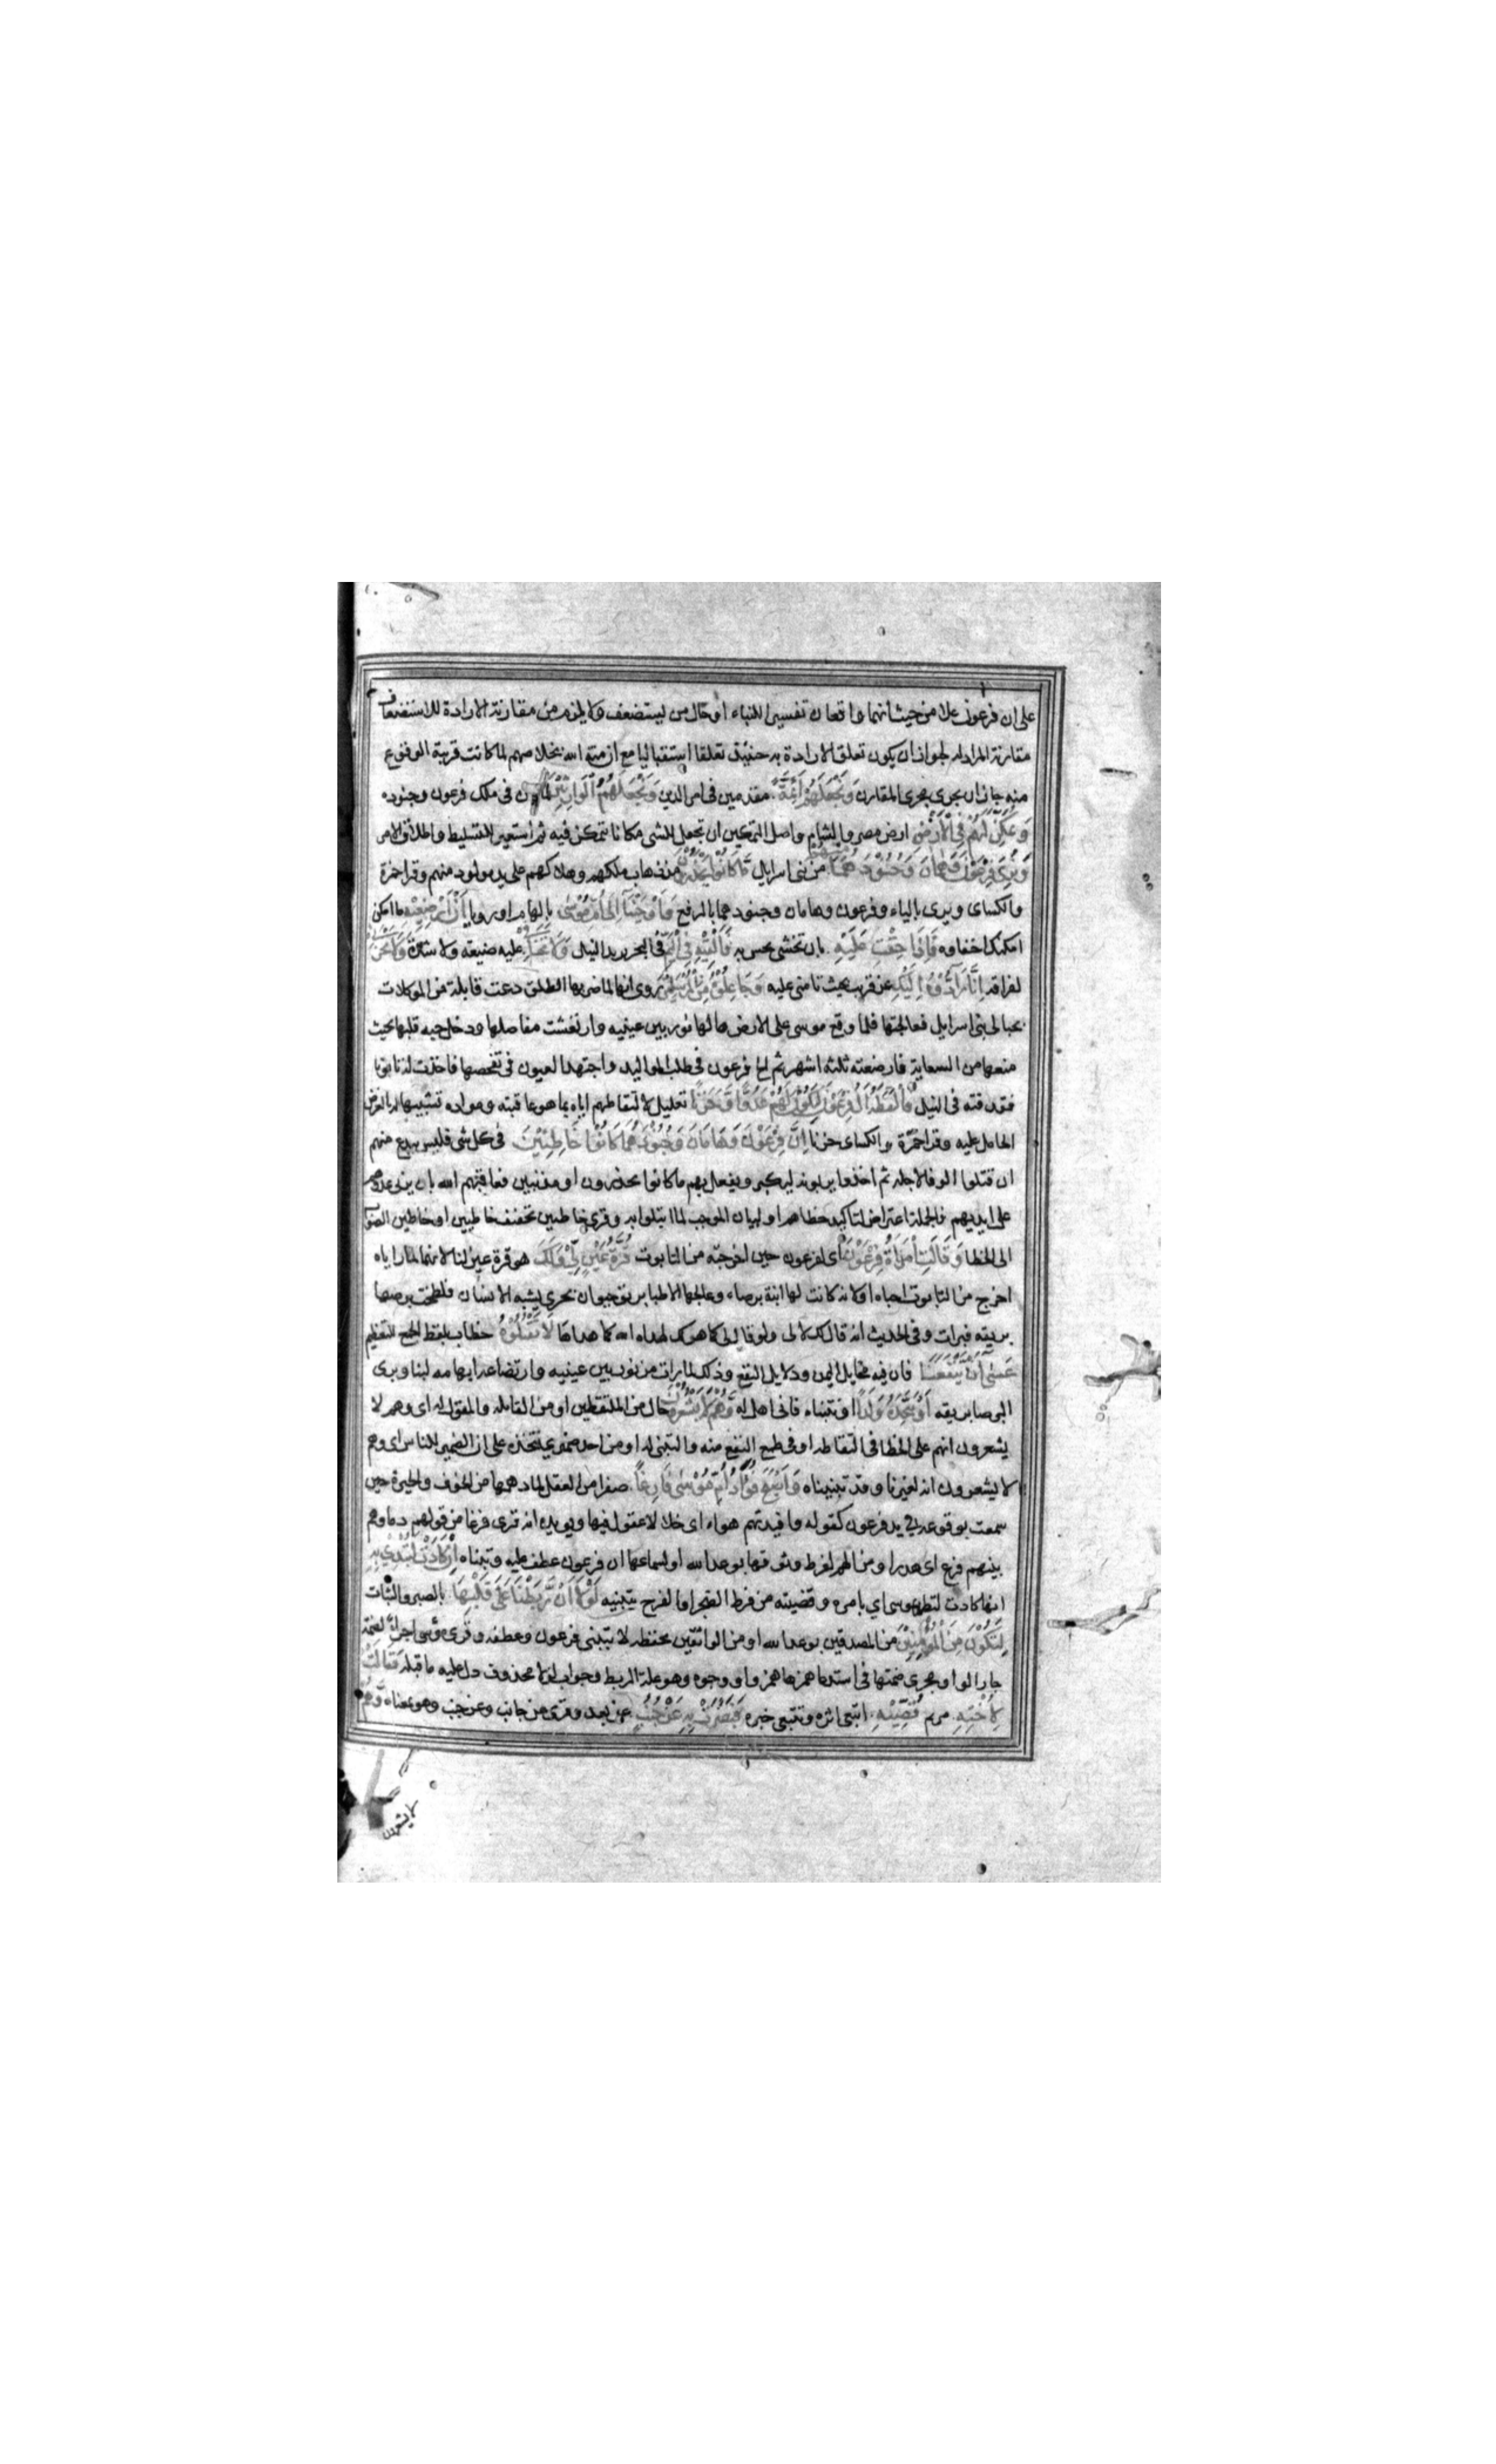 على ان فرعون علا من حيث انهما واقعان تفسيرا للنباء او حال من يستضعف ولا يلزم من مقارنة الارادة للاستضعاف
مقارنة المراد له لجواز ان يكون تعلق الارادة به حينئذ تعلقا استقباليا مع ان منة الله بخلاصهم لما كانت قريبة الوقوع
منه جاز ان يجرى مجرى المقارن وَنَجْعَلَهُمْ اَئِمَّةً مقدمين فى امر الدين وَنَجْعَلَهُمُ الْوَارِثِيْنَ لما كان فى ملك فرعون وجنوده
وَنُمَكِّنَ لَهُمْ فِى الْاَرْضِ ارض مصر والشام واصل التمكين ان تجعل للشى مكانا يتمكن فيه ثم استعير للتسليط واطلاق الامر
وَنُرِىَ فِرْعَوْنَ وَهَامَانَ وَجُنُوْدَهُمَا مِنْهُمْ من بنى اسرايل مَّا كَانُوْا يَحْذَرُوْنَ من ذهاب ملكهم وهلاكهم على يد مولود منهم وقرا حمزة
والكساى ويرى بالياء وفرعون وهامان وجنودهما بالرفع وَاَوْحَيْنَا اِلٰى اُمِّ مُوْسٰى بالهام او رويا اَنْ اَرْضِعِيْهِ ما امكن
امكنك اخفاوه فَاِذَا خِفْتِ عَلَيْهِ بان تخشى يحس به فَاَلْقِيْهِ فِى الْيَمِّ فى البحر يريد النيل وَلَا تَخَافِىْ عليه ضيعته ولا شدة وَلَا تَحْزَنِىْ
لفراقه اِنَّا رَادُّوْهُ اِلَيْكِ عن قريب بحيث تامنى عليه وَجَاعِلُوْهُ مِنَ الْمُرْسَلِيْنَ روى انها لما ضربها الطلق دعت قابلة من الموكلات
بحبالى بنى اسرايل فعالجتها فلما وقع موسى على الارض هالها نور بين عينيه وارتعشت مفاصلها ودخل حبه قلبها بحيث
منعها من السعاية فارضعته ثلثة اشهر ثم الح فرعون فى طلب المواليد واجتهد العيون فى تفحصها فاخذت له تابوتا
فقذفته فى النيل فَالْتَقَطَهٗ اٰلُ فِرْعَوْنَ لِيَكُوْنَ لَهُمْ عَدُوًّا وَّحَزَنًا تعليل لالتقاطهم اياه بما هو عاقبته ومواده تشبيها له بالغرض
الحامل عليه وقرا حمزة والكساى حزنا اِنَّ فِرْعَوْنَ وَهَامَانَ وَجُنُوْدَهُمَا كَانُوْا خَاطِئِيْنَ فى كل شى فليس ببدع منهم
ان قتلوا الوفا لاجله ثم اخذوا يربونه ليكبر ويفعل بهم ما كانوا يحذرون او مذنبين فعاقبهم الله بان ربى عدوهم
على ايديهم فالجملة اعتراض لتاكيد خطاهم او لبيان الموجب لما ابتلوا به وقرى خاطين تخفيف خاطيين او خاطين الصواب
الى الخطا وَقَالَتِ امْرَاَةُ فِرْعَوْنَ اى لفرعون حين اخرجته من التابوت قُرَّةُ عَيْنٍ لِّىْ وَلَكَ هو قرة عين لنا لانهما لما راياه
اخرج من التابوت احباه او لانه كانت لها ابنة برصاء وعالجها الاطبا بريق حيوان بحرى يشبه الانسان فلطخت برصها
بريقه فبرات وفى الحديث انه قال لك لا لى ولو قال لى كما هو لك لهداه الله كما هداها لَا تَقْتُلُوْهُ خطاب بلفظ الجمع للتعظيم
عَسٰى اَنْ يَّنْفَعَنَا فان فيه مخايل اليمن ودلايل النفع وذلك لما رات من نور بين عينيه وارتضاعه ابهامه لبنا وبرى
البرصا بريقه اَوْ نَتَّخِذَهٗ وَلَدًا او نتبناه فانه اهل له وَهُمْ لَا يَشْعُرُوْنَ حال من الملتقطين او من القايله والمقول له اى وهم لا
يشعرون انهم على الخطا فى التقاطه او فى طمع النفع منه والتبنى له او من احد ضميرى نتخذه على ان الضمير للناس اى وهم
لا يشعرون انه لغيرنا وقد تبنيناه وَاَصْبَحَ فُوَادُ اُمِّ مُوْسٰى فَارِغًا صفرا من العقل لما دهمها من الخوف والحيرة حين
سمعت بوقوعه فى يد فرعون كقوله وافيدتهم هواء اى خلاء لا عقول فيها ويويده انه قرى فرغا من قولهم دماوهم
بينهم فرغ اى هدرا ومن الهم لفرط وثوقها بوعد الله او لسماعها ان فرعون عطف عليه وتبناه اِنْ كَادَتْ لَتُبْدِىْ بِهٖ
انها كادت لتظهر بموسى اي بامره وقضيته من فرط الضجر او الفرح بتبنيه لَوْلَا اَنْ رَّبَطْنَا عَلٰى قَلْبِهَا بالصبر والثبات
لِتَكُوْنَ مِنَ الْمُوْمِنِيْنَ من المصدقين بوعد الله او من الواثقين بحفظه لا بتبنى فرعون وعطفه وقرى موسى اجراء لضمة
جار الواو مجرى ضمتها فى استدعا همزها همز واو وجوه وهو علة الربط وجواب لولا محذوف دل عليه ما قبله وَقَالَتْ
لِاُخْتِهٖ مريم قُصِّيْهِ اتبعى اثره وتتبعى خبره فَبَصُرَتْ بِهٖ عَنْ جُنُبٍ عن بعد وقرى عن جانب وعن جنب وهو بمعناه وَهُمْ
لا يشعرون